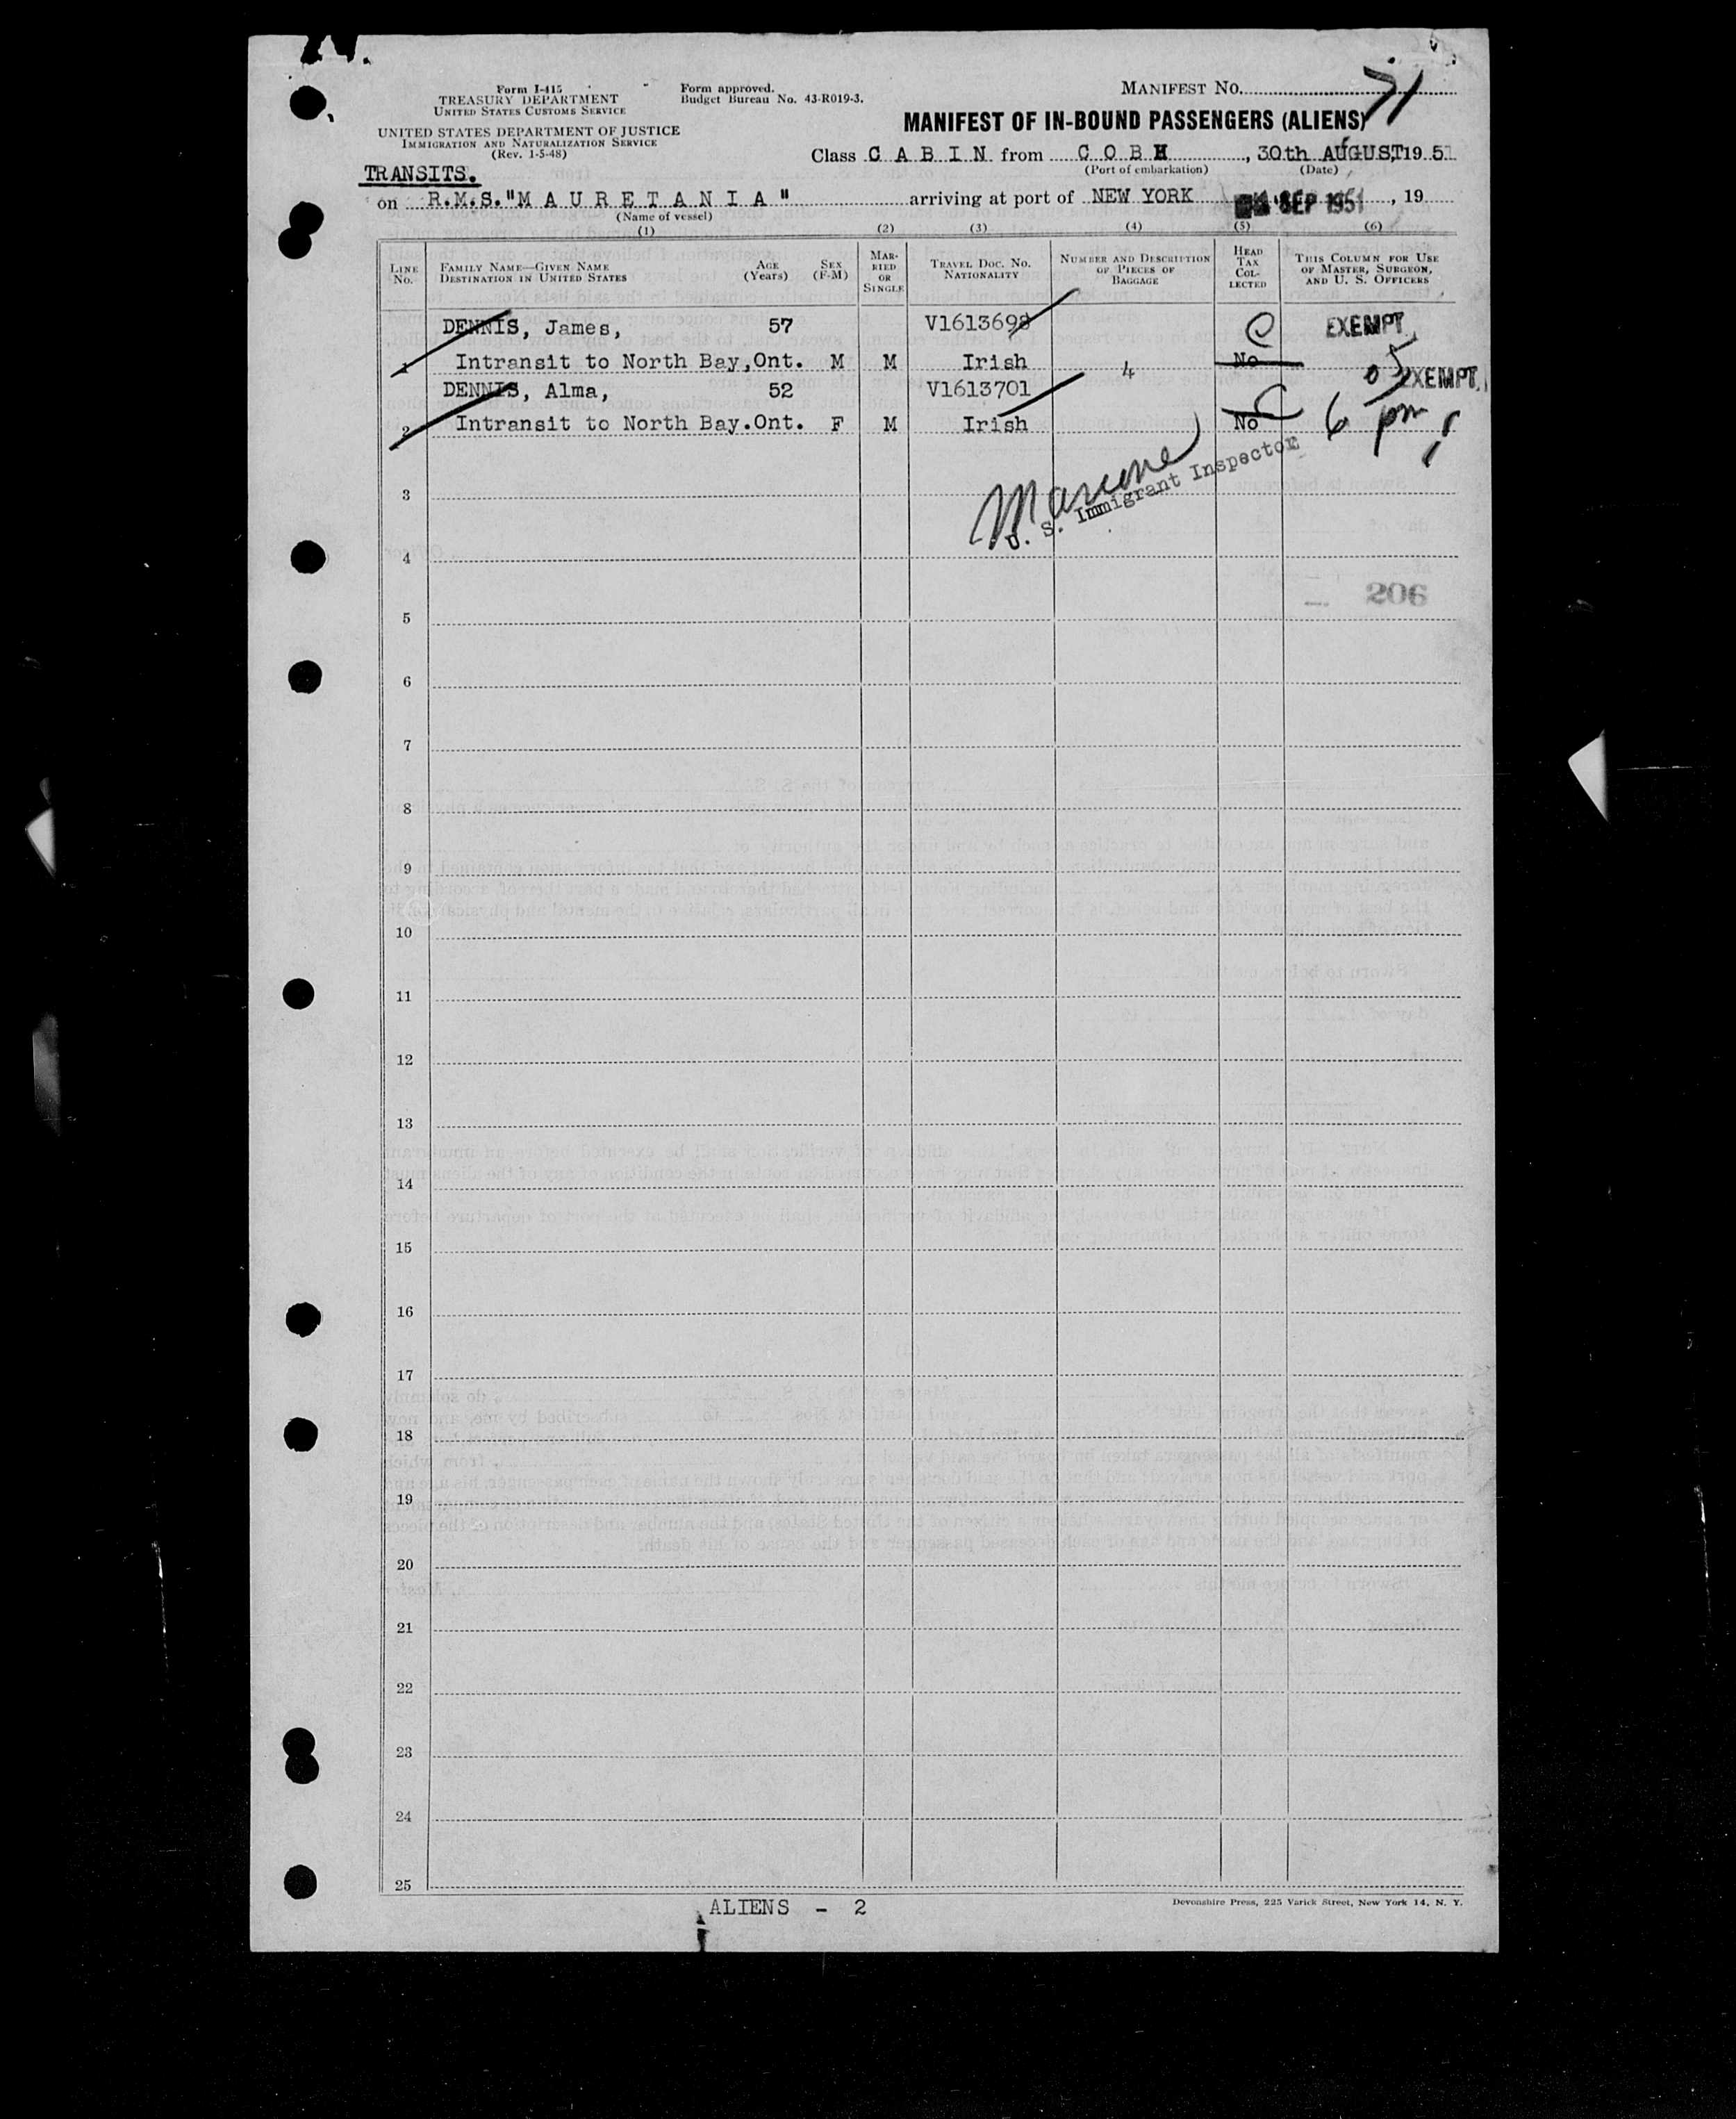 Form I-415
TREASURY DEPARTMENT
UNITED STATES CUSTOMS SERVICE
UNITED STATES DEPARTMENT OF JUSTICE
IMMIGRATION AND NATURALIZATION SERVICE
(Rev. 1-5-48)
Form approved.
Budget Bureau No. 43-R019-3.
MANIFEST NO. 71
MANIFEST OF IN-BOUND PASSENGERS (ALIENS)
Class C A B I N from C O B H, 30th AUGUST 19 51
(Port of embarkation) (Date)
TRANSITS.
on R.M.S. "M A U R E T A N I A" arriving at port of NEW YORK SEP 1951, 19
(Name of vessel)
(1) (2) (3) (4) (5) (6)
LINE NO.
FAMILY NAME—GIVEN NAME
DESTINATION IN UNITED STATES
AGE (Years)
SEX (F-M)
MARRIED OR SINGLE
TRAVEL DOC. NO.
NATIONALITY
NUMBER AND DESCRIPTION OF PIECES OF BAGGAGE
HEAD TAX COLLECTED
THIS COLUMN FOR USE OF MASTER, SURGEON, AND U. S. OFFICERS
DENNIS, James, 57 V1613698 C EXEMPT
1 Intransit to North Bay, Ont. M M Irish 4 No
DENNIS, Alma, 52 V1613701 C EXEMPT
2 Intransit to North Bay. Ont. F M Irish No 6 pm
U. S. Immigrant Inspector
3
4
206
5
6
7
8
9
10
11
12
13
14
15
16
17
18
19
20
21
22
23
24
25
ALIENS - 2
Devonshire Press, 225 Varick Street, New York 14, N. Y.